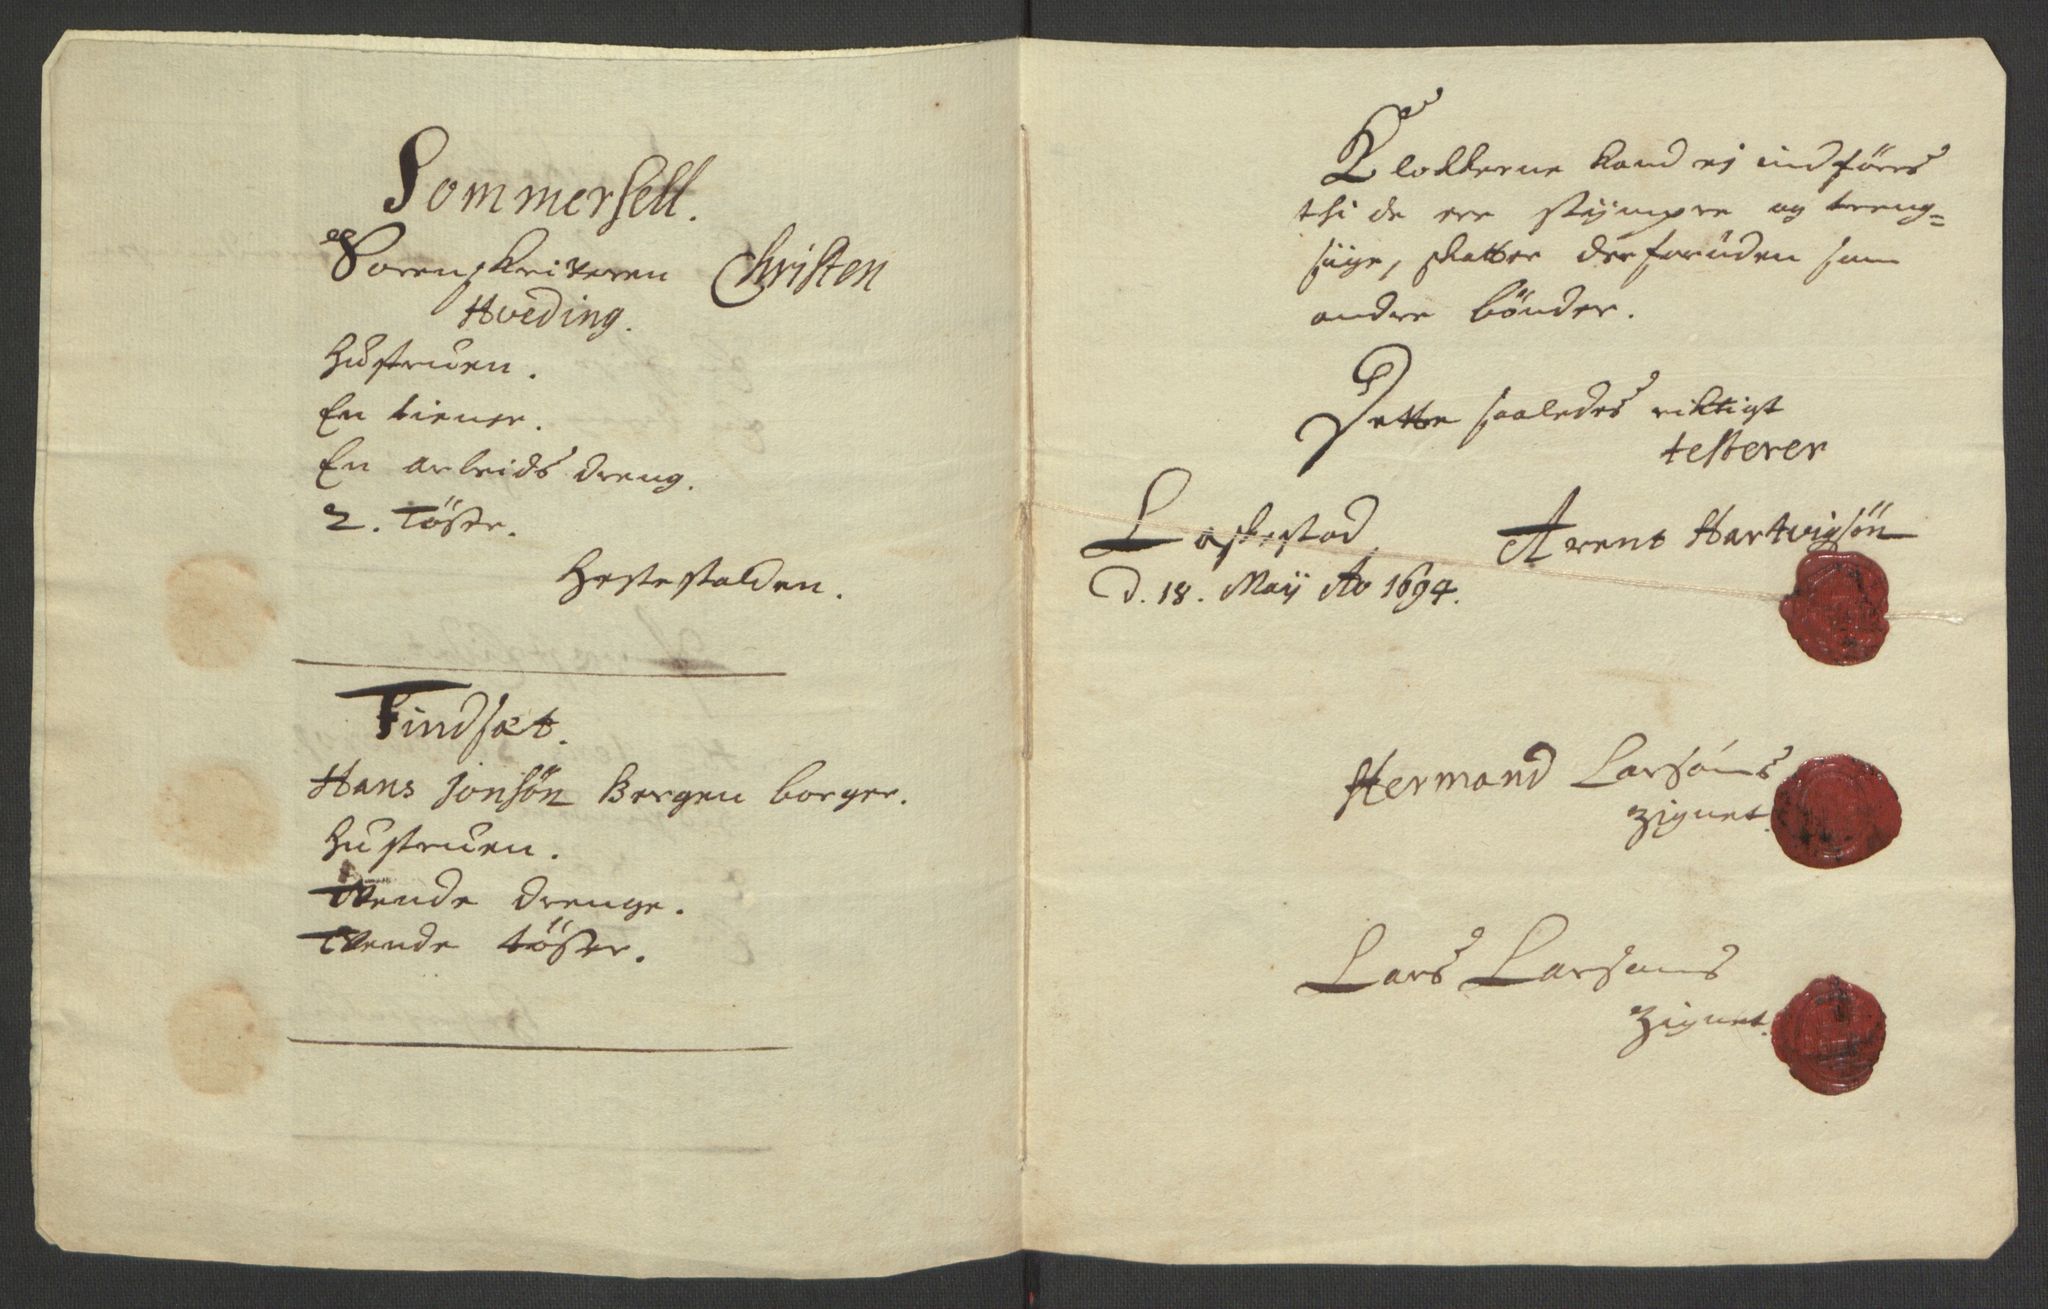 Sommersell.
Sorenskriveren Christen
Hveding.
Hustruen.
En tiener.
En arbeids dreng.
2. Töser.
Hestestalden.
Findsæt.
Hans Jonsön Bergen borger.
Hustruen.
Tvende drenge.
Tvende töser.
Klokkerne kand ej indföres
thi de ere stÿmpre og treng-
siuge, skatter desforuden som
andre bönder.
Dette saaledes riktigt
testerer
Laskestad
d. 18. Maÿ Ao 1694.
Arent Hartvigsön
Hermand Larsöns
Zignet.
Lars Larsöns
Zignet.